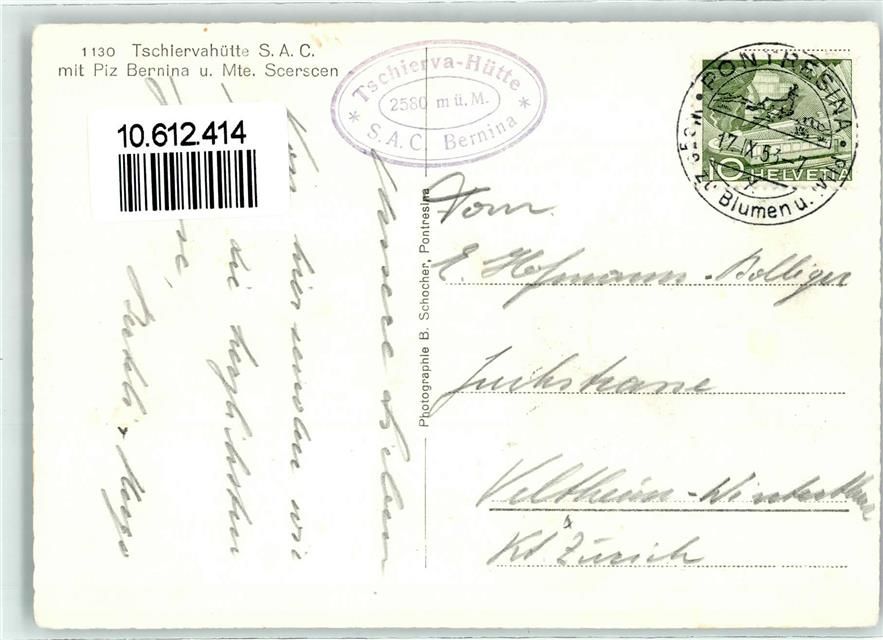 1130 Tschiervahütte S. A. C.
mit Piz Bernina u. Mte. Scerscen
10.612.414
Tschierva-Hütte
2580 m ü. M.
* S. A. C. Bernina *
PONTRESINA
17.IX.53-7
Blumen u.
10 HELVETIA
Photographie B. Schocher, Pontresina
Unsere Lieben
Von hier senden wir
die herzlichsten
E. Hofmann-Bolliger
Veltheim-Winterthur
Kt. Zürich